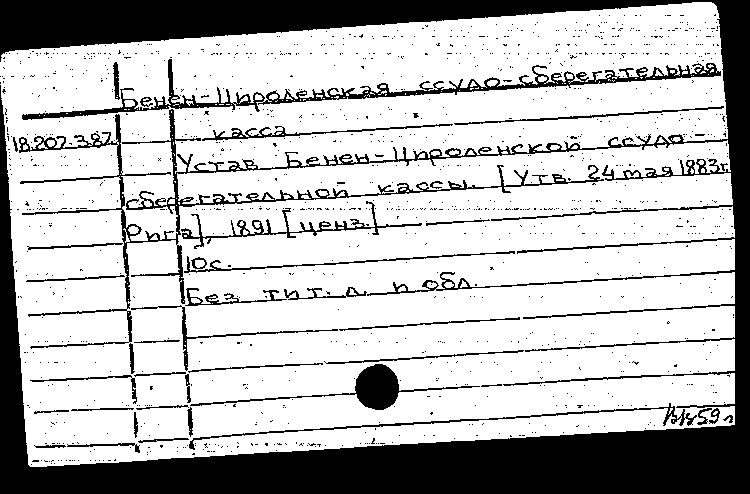 Бенен-Цироленская ссудо-сберегательная
18.207.387 касса
Устав Бенен-Цироленской ссудо-
сберегательной кассы. [Утв. 24 мая 1883г.
Рига], 1891 [ценз.]
10с.
Без тит. л. и обл.